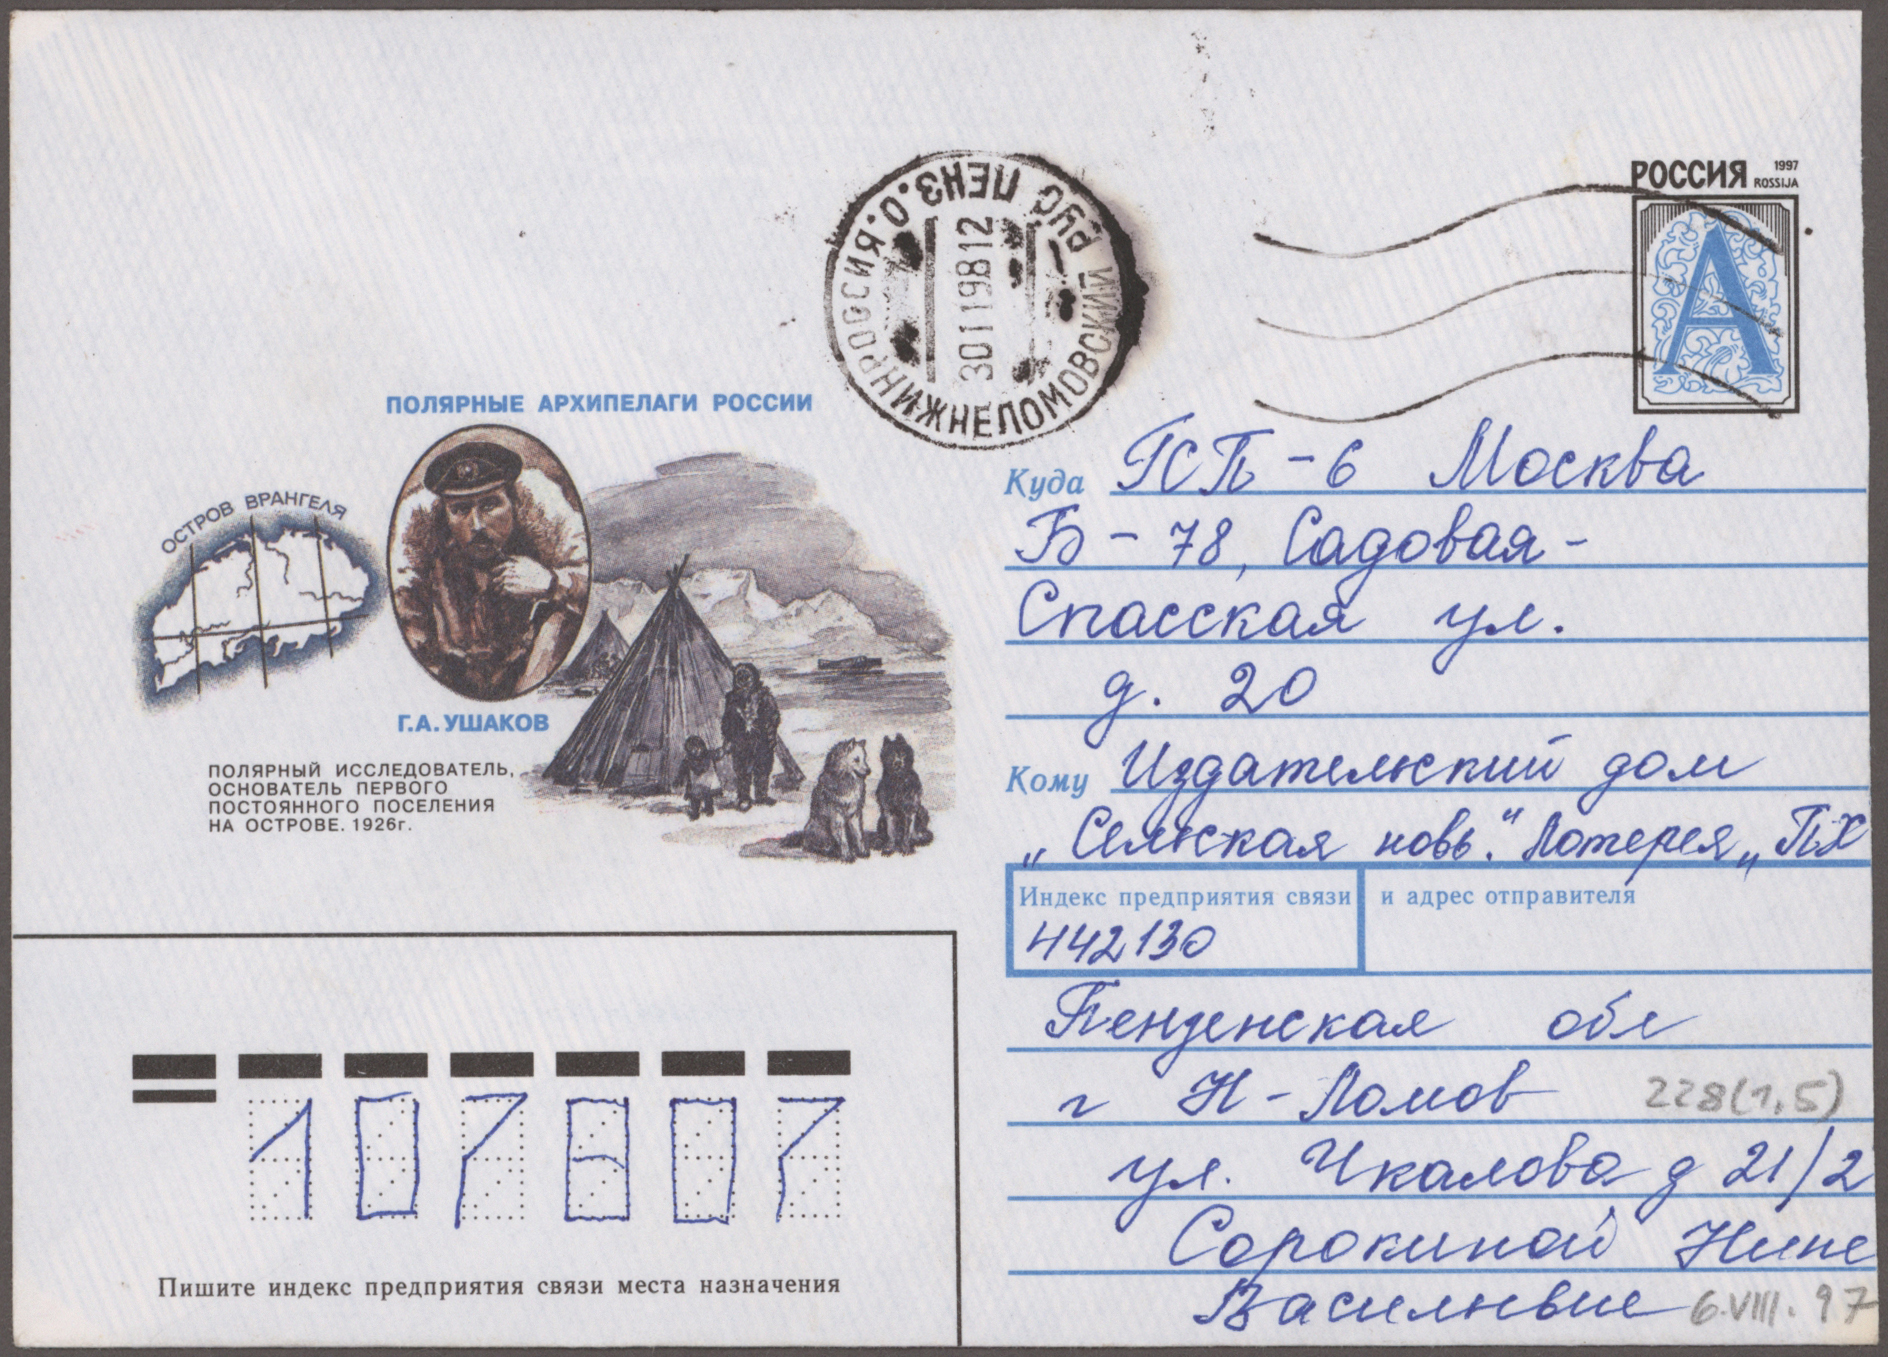 РОССИЯ 1997
ROSSIJA
А
РОССИЯ. НИЖНЕЛОМОВСКИЙ РУС ПЕНЗ.О.
30119812
ПОЛЯРНЫЕ АРХИПЕЛАГИ РОССИИ
ОСТРОВ ВРАНГЕЛЯ
Г.А.УШАКОВ
ПОЛЯРНЫЙ ИССЛЕДОВАТЕЛЬ,
ОСНОВАТЕЛЬ ПЕРВОГО
ПОСТОЯННОГО ПОСЕЛЕНИЯ
НА ОСТРОВЕ. 1926г.
Куда ГСП-6 Москва
Б-78, Садовая-
Спасская ул.
д. 20
Кому Издательский дом
„Сельская новь." Лотерея „ПХ
Индекс предприятия связи и адрес отправителя
442130
Пензенская обл
г Н-Ломов 228(1,5)
ул. Чкалова д 21/2
Сорокиной Нине
Васильевне 6.VIII.97
107807
Пишите индекс предприятия связи места назначения